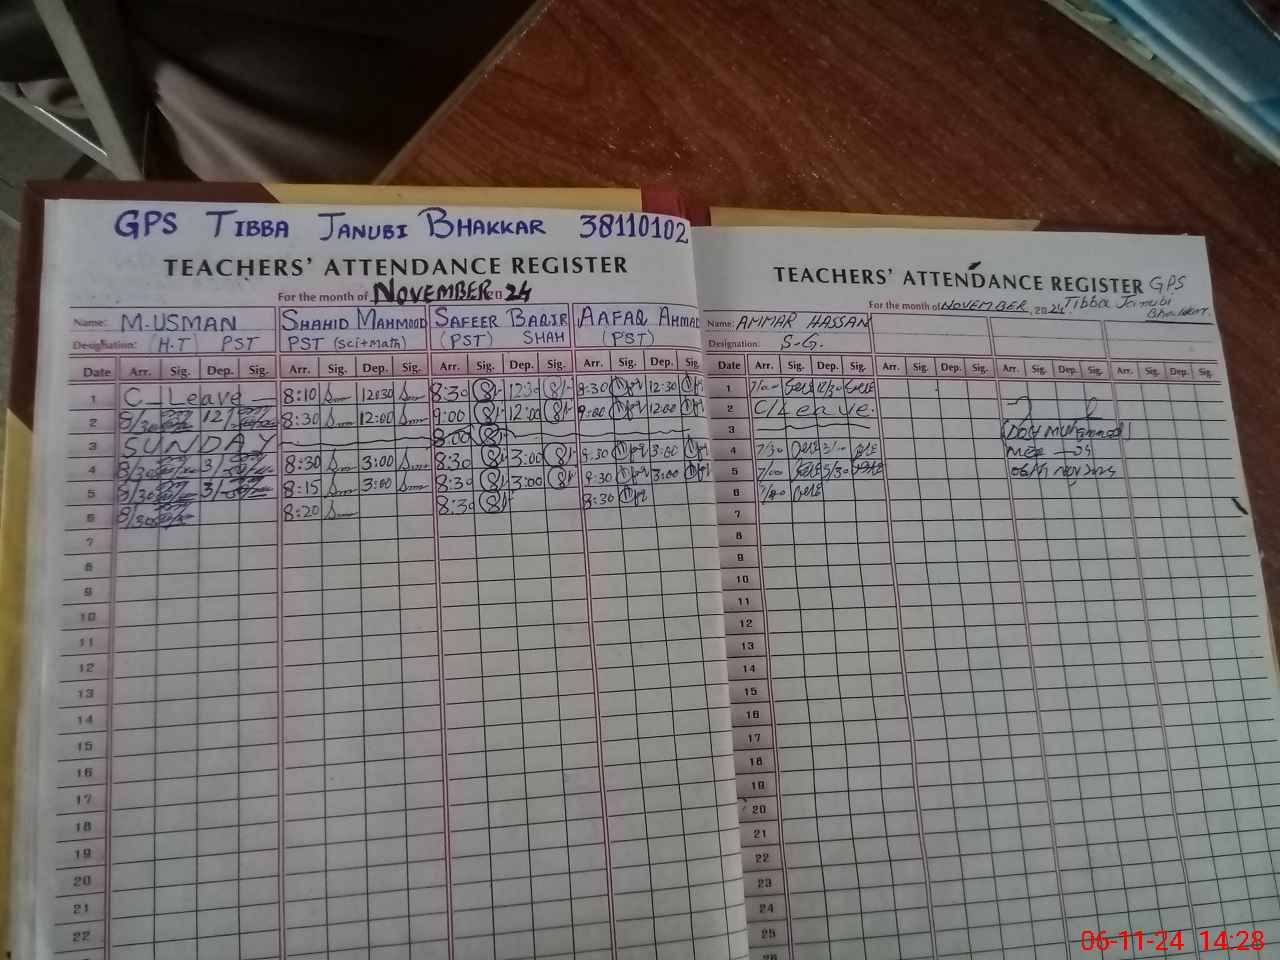 GPS TIBBA JANUBI BHAKKAR 38110102
TEACHERS' ATTENDANCE REGISTER
For the month of NOVEMBER 20 24
Name: M.USMAN SHAHID MAHMOOD SAFEER BAQIR SHAH AAFAQ AHMAD
Designation: (H.T) PST PST (sci+math) (PST) (PST)
Date Arr. Sig. Dep. Sig. Arr. Sig. Dep. Sig. Arr. Sig. Dep. Sig. Arr. Sig. Dep. Sig.
1 C-Leave 8:10 12:30 8:30 12:30 8:30 12:30
2 8/30 12/ 8:30 12:00 9:00 12:00 9:00 12:00
3 SUNDAY 8:00
4 8/30 3/ 8:30 3:00 8:30 3:00 8:30 3:00
5 8/30 3/ 8:15 3:00 8:30 3:00 8:30 3:00
6 8/30 8:20 8:30 8:30
7
8
9
10
11
12
13
14
15
16
17
18
19
20
21
22
TEACHERS' ATTENDANCE REGISTER GPS
For the month of NOVEMBER, 2024 Tibba Janubi
Bhakkar.
Name: AMMAR HASSAN
Designation: S.G.
Date Arr. Sig. Dep. Sig. Arr. Sig. Dep. Sig. Arr. Sig. Dep. Sig. Arr. Sig. Dep. Sig.
1 7/00 12/30
2 C/Leave.
3
4 7/30
5 7/00 3/30
6 7/00
06th Nov 2024
7
8
9
10
11
12
13
14
15
16
17
18
19
20
21
22
23
24
25
26
06-11-24 14:28